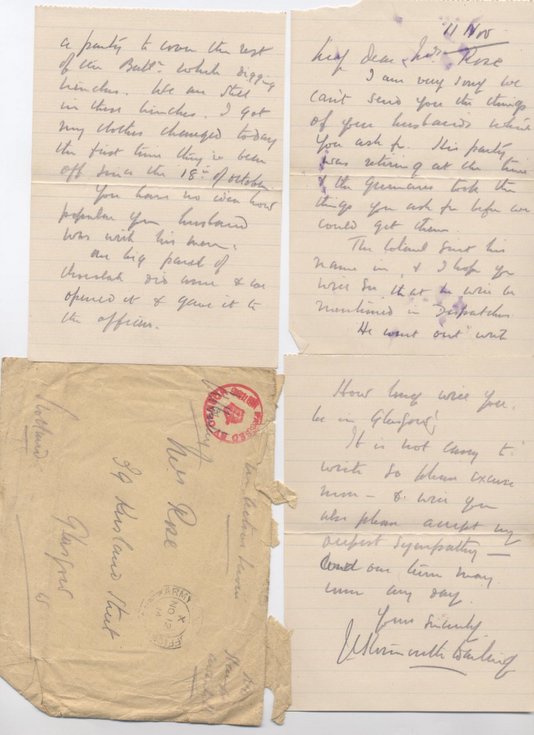 11 Nov
My Dear Mrs Rose
I am very sorry we
can't send you the things
of your husbands which
you ask for. His party
was retiring at the time
& the Germans took the
things you ask for before we
could get them.
The Colonel sent his
name in, & I hope you
will see that he will be
mentioned in Dispatches
He went out with
a party to cover the rest
of the Battn. while digging
trenches. We are still
in these trenches. I got
my clothes changed today
the first time they've been
off since the 18th of October
You have no idea how
popular your husband
was with his men.
One big parcel of
chocolate did come & we
opened it & gave it to
the officers.
How long will you
be in Glasgow?
It is not easy to
write so please excuse
more - & will you
also please accept my
deepest sympathy -
our turn may
come any day.
Yours sincerely
PASSED BY
CENSOR
On Active Service
Mrs Rose
39 Kersland Street
Glasgow
Scotland
ARMY
X
NO 12
14